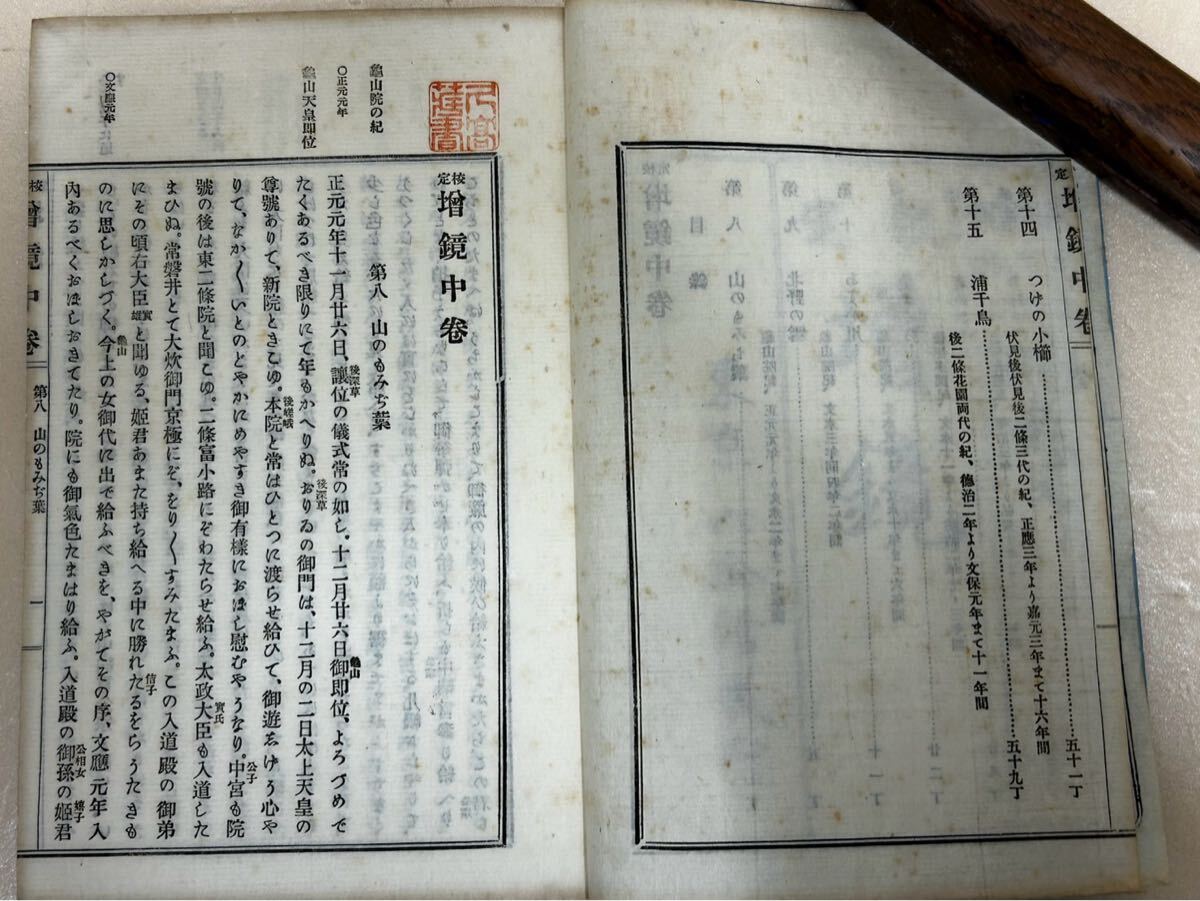 校定 增鏡中卷
第十四 つげの小櫛……五十一丁
伏見後伏見後二條三代の紀、正應三年より嘉元三年まて十六年間
第十五 浦千鳥……五十九丁
後二條花園両代の紀、德治二年より文保元年まて十一年間
龜山院の紀
〇正元元年
龜山天皇即位
〇文應元年
校定 增鏡中卷
第八 山のもみぢ葉
正元元年十一月廿六日、讓位の儀式常の如し。十二月廿六日御即位、よろづめで
後深草
龜山
たくあるべき限りにて年もかへりぬ。おりゐの御門は、十二月の二日太上天皇の
後深草
尊號ありて、新院ときこゆ。本院と常はひとつに渡らせ給ひて、御遊志げう心や
後嵯峨
りて、なか〱いとのとやかにめやすき御有樣におぼし慰むやうなり。中宮も院
公子
號の後は東二條院と聞こゆ。二條富小路にぞわたらせ給ふ。太政大臣も入道した
實氏
まひぬ。常磐井とて大炊御門京極にぞ、をり〱すみたまふ。この入道殿の御弟
にその頃右大臣と聞ゆる、姬君あまた持ち給へる中に勝れたるをらうたきも
實雄
佶子
のに思しかしづく。今上の女御代に出で給ふべきを、やがてその序、文應元年入
龜山
內あるべくおぼしおきてたり。院にも御氣色たまはり給ふ。入道殿の御孫の姬君
公相女
嬉子
校 增鏡中卷 第八 山のもみぢ葉 一